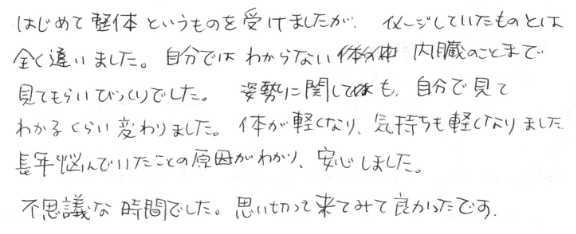 はじめて整体というものを受けましたが、イメージしていたものとは
全く違いました。自分ではわからない 内臓のことまで
見てもらいびっくりでした。 姿勢に関しても、自分で見て
わかるくらい変わりました。体が軽くなり、気持ちも軽くなりました
長年悩んでいたことの原因がわかり、安心しました。
不思議な時間でした。思い切って来てみて良かったです。